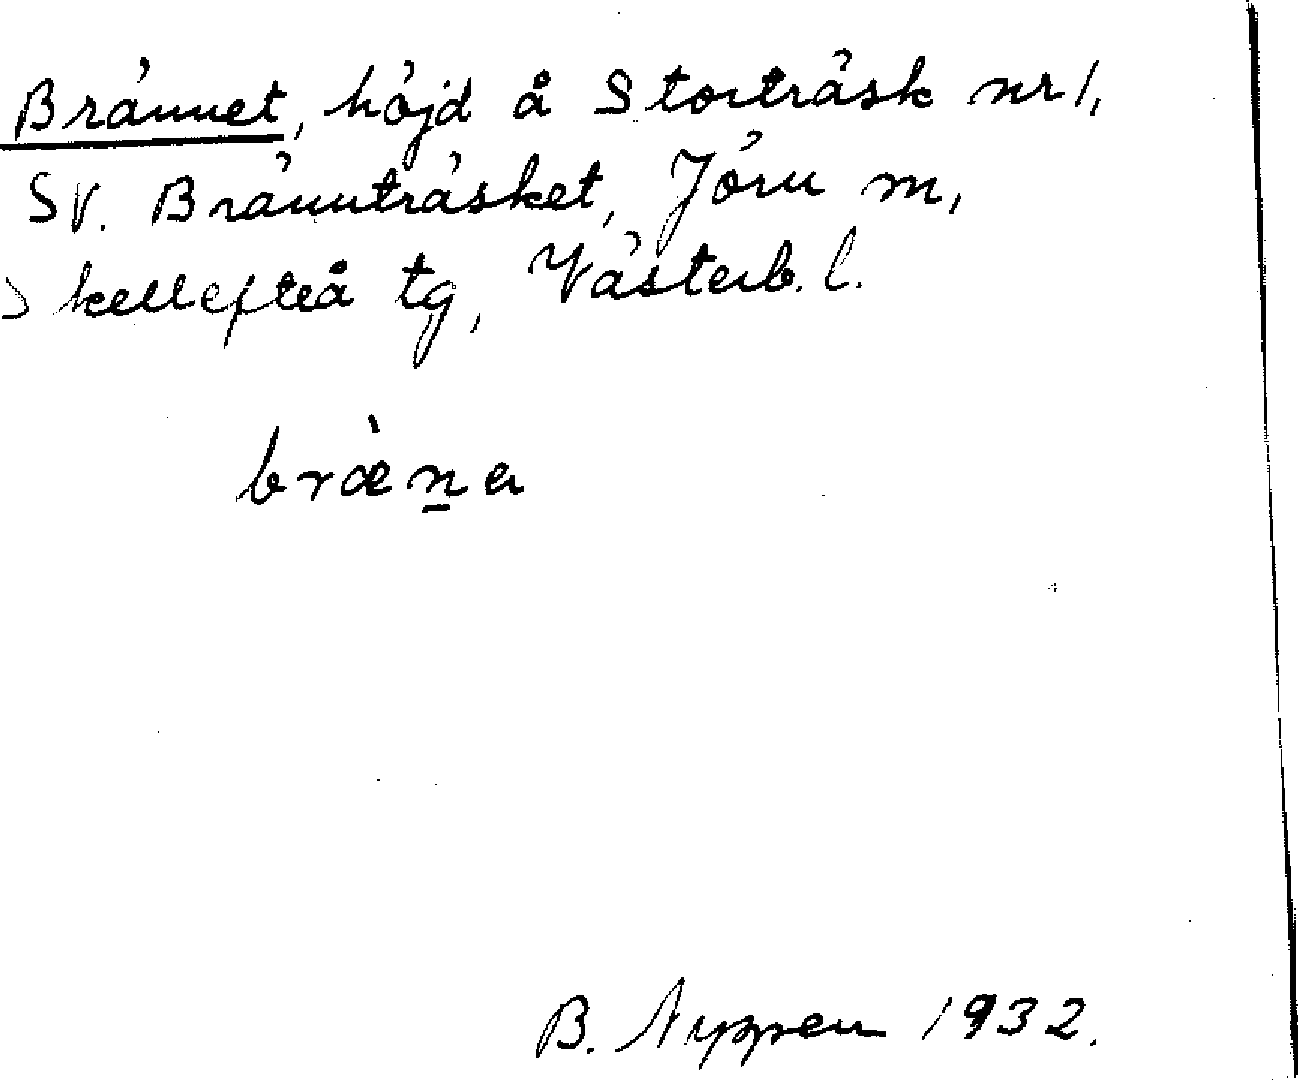 Brännet, höjd å Storträsk nr 1,
SV. Brännträsket, Jörn m,
Skellefteå tg, Västerb. l.
bræ̀n̲a
B. Nyppen 1932.